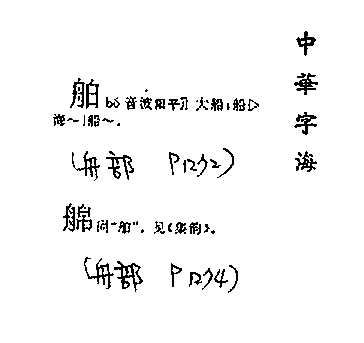 中華字海
舶 bó 音波阳平】大船:船▷
海~|船~。
(舟部 P1272)
𦪇 同"舶"。见《集韵》。
(舟部 P1274)